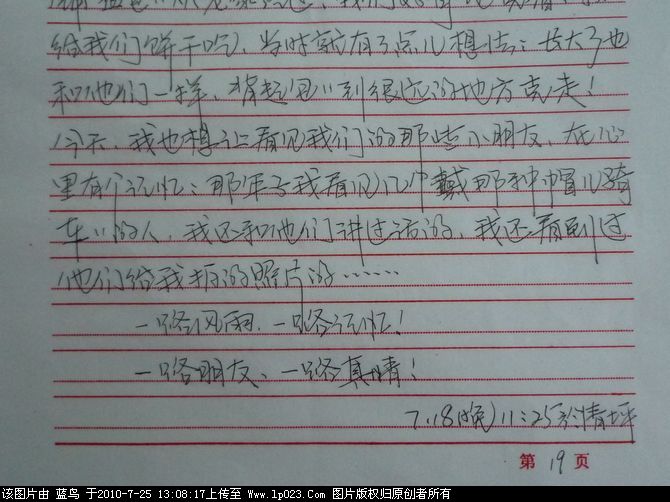 给我们饼干吃，当时就有了点儿想法：长大了也
和他们一样，背起包""到很远的地方克走！
今天，我也想让看见我们的那些小朋友，在心
里有个记忆：那年子我看见几个戴那种帽儿骑
车""的人，我还和他们讲过话的，我还看到过
他们给我拆的照片的……
一路风雨、一路记忆！
一路朋友、一路真情！
7.18(晚)11:25 于清坪
第19页
该图片由 蓝鸟 于2010-7-25 13:08:17上传至 Www.lp023.Com 图片版权归原创者所有